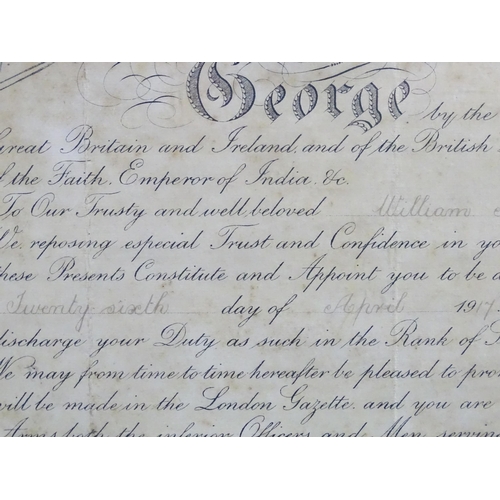 George, by the
Great Britain and Ireland, and of the British
the Faith, Emperor of India, &c.
To Our Trusty and well beloved William
We, reposing especial Trust and Confidence in
these Presents Constitute and Appoint you to be
Twenty sixth day of April 1917.
discharge your Duty as such in the Rank of
We may from time to time hereafter be pleased to
will be made in the London Gazette, and you are
Arms both the inferior Officers and Men